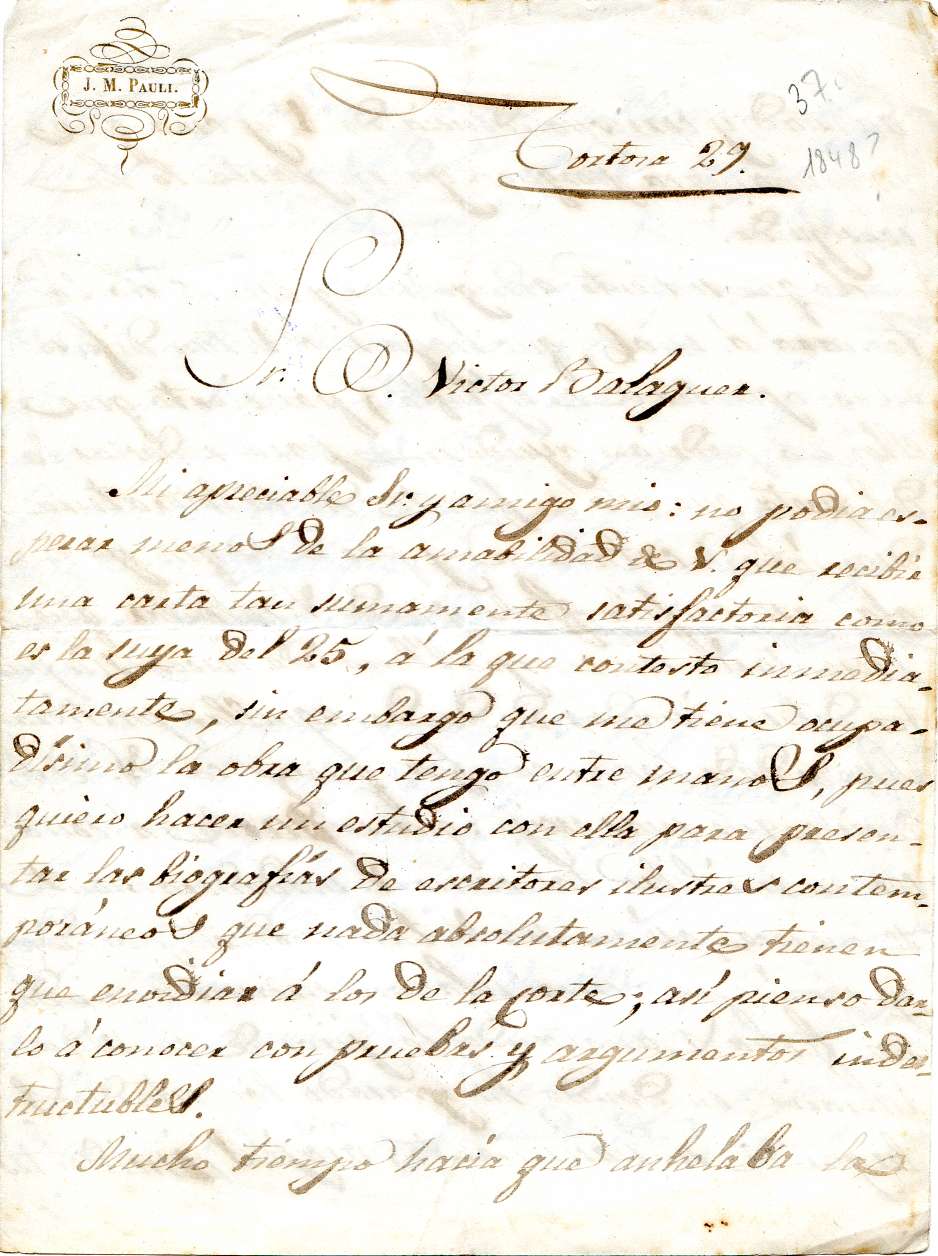 J. M. PAULI.
37.
Tortosa 29.
1848?
Sr. D. Victor Balaguer.
Mi apreciable Sr. y amigo mio: no podia es-
perar menos de la amabilidad de V. que recibir
una carta tan sumamente satisfactoria como
es la suya del 25, á la que contesto inmedia-
tamente, sin embargo que me tiene ocupa-
dísimo la obra que tengo entre manos, pues
quiero hacer un estudio con ella para presen-
tar las biografías de escritores ilustres contem-
poráneos que nada absolutamente tienen
que envidiar á los de la corte; así pienso dar-
lo á conocer con pruebas y argumentos indes-
tructubles.
Mucho tiempo hacia que anhelaba la